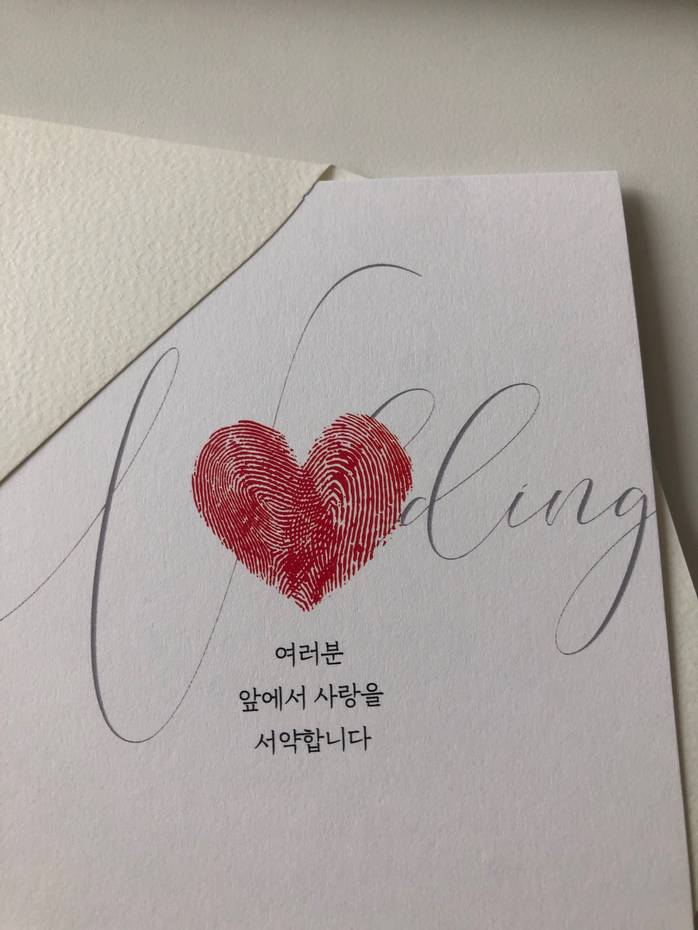 Wedding
여러분
앞에서 사랑을
서약합니다